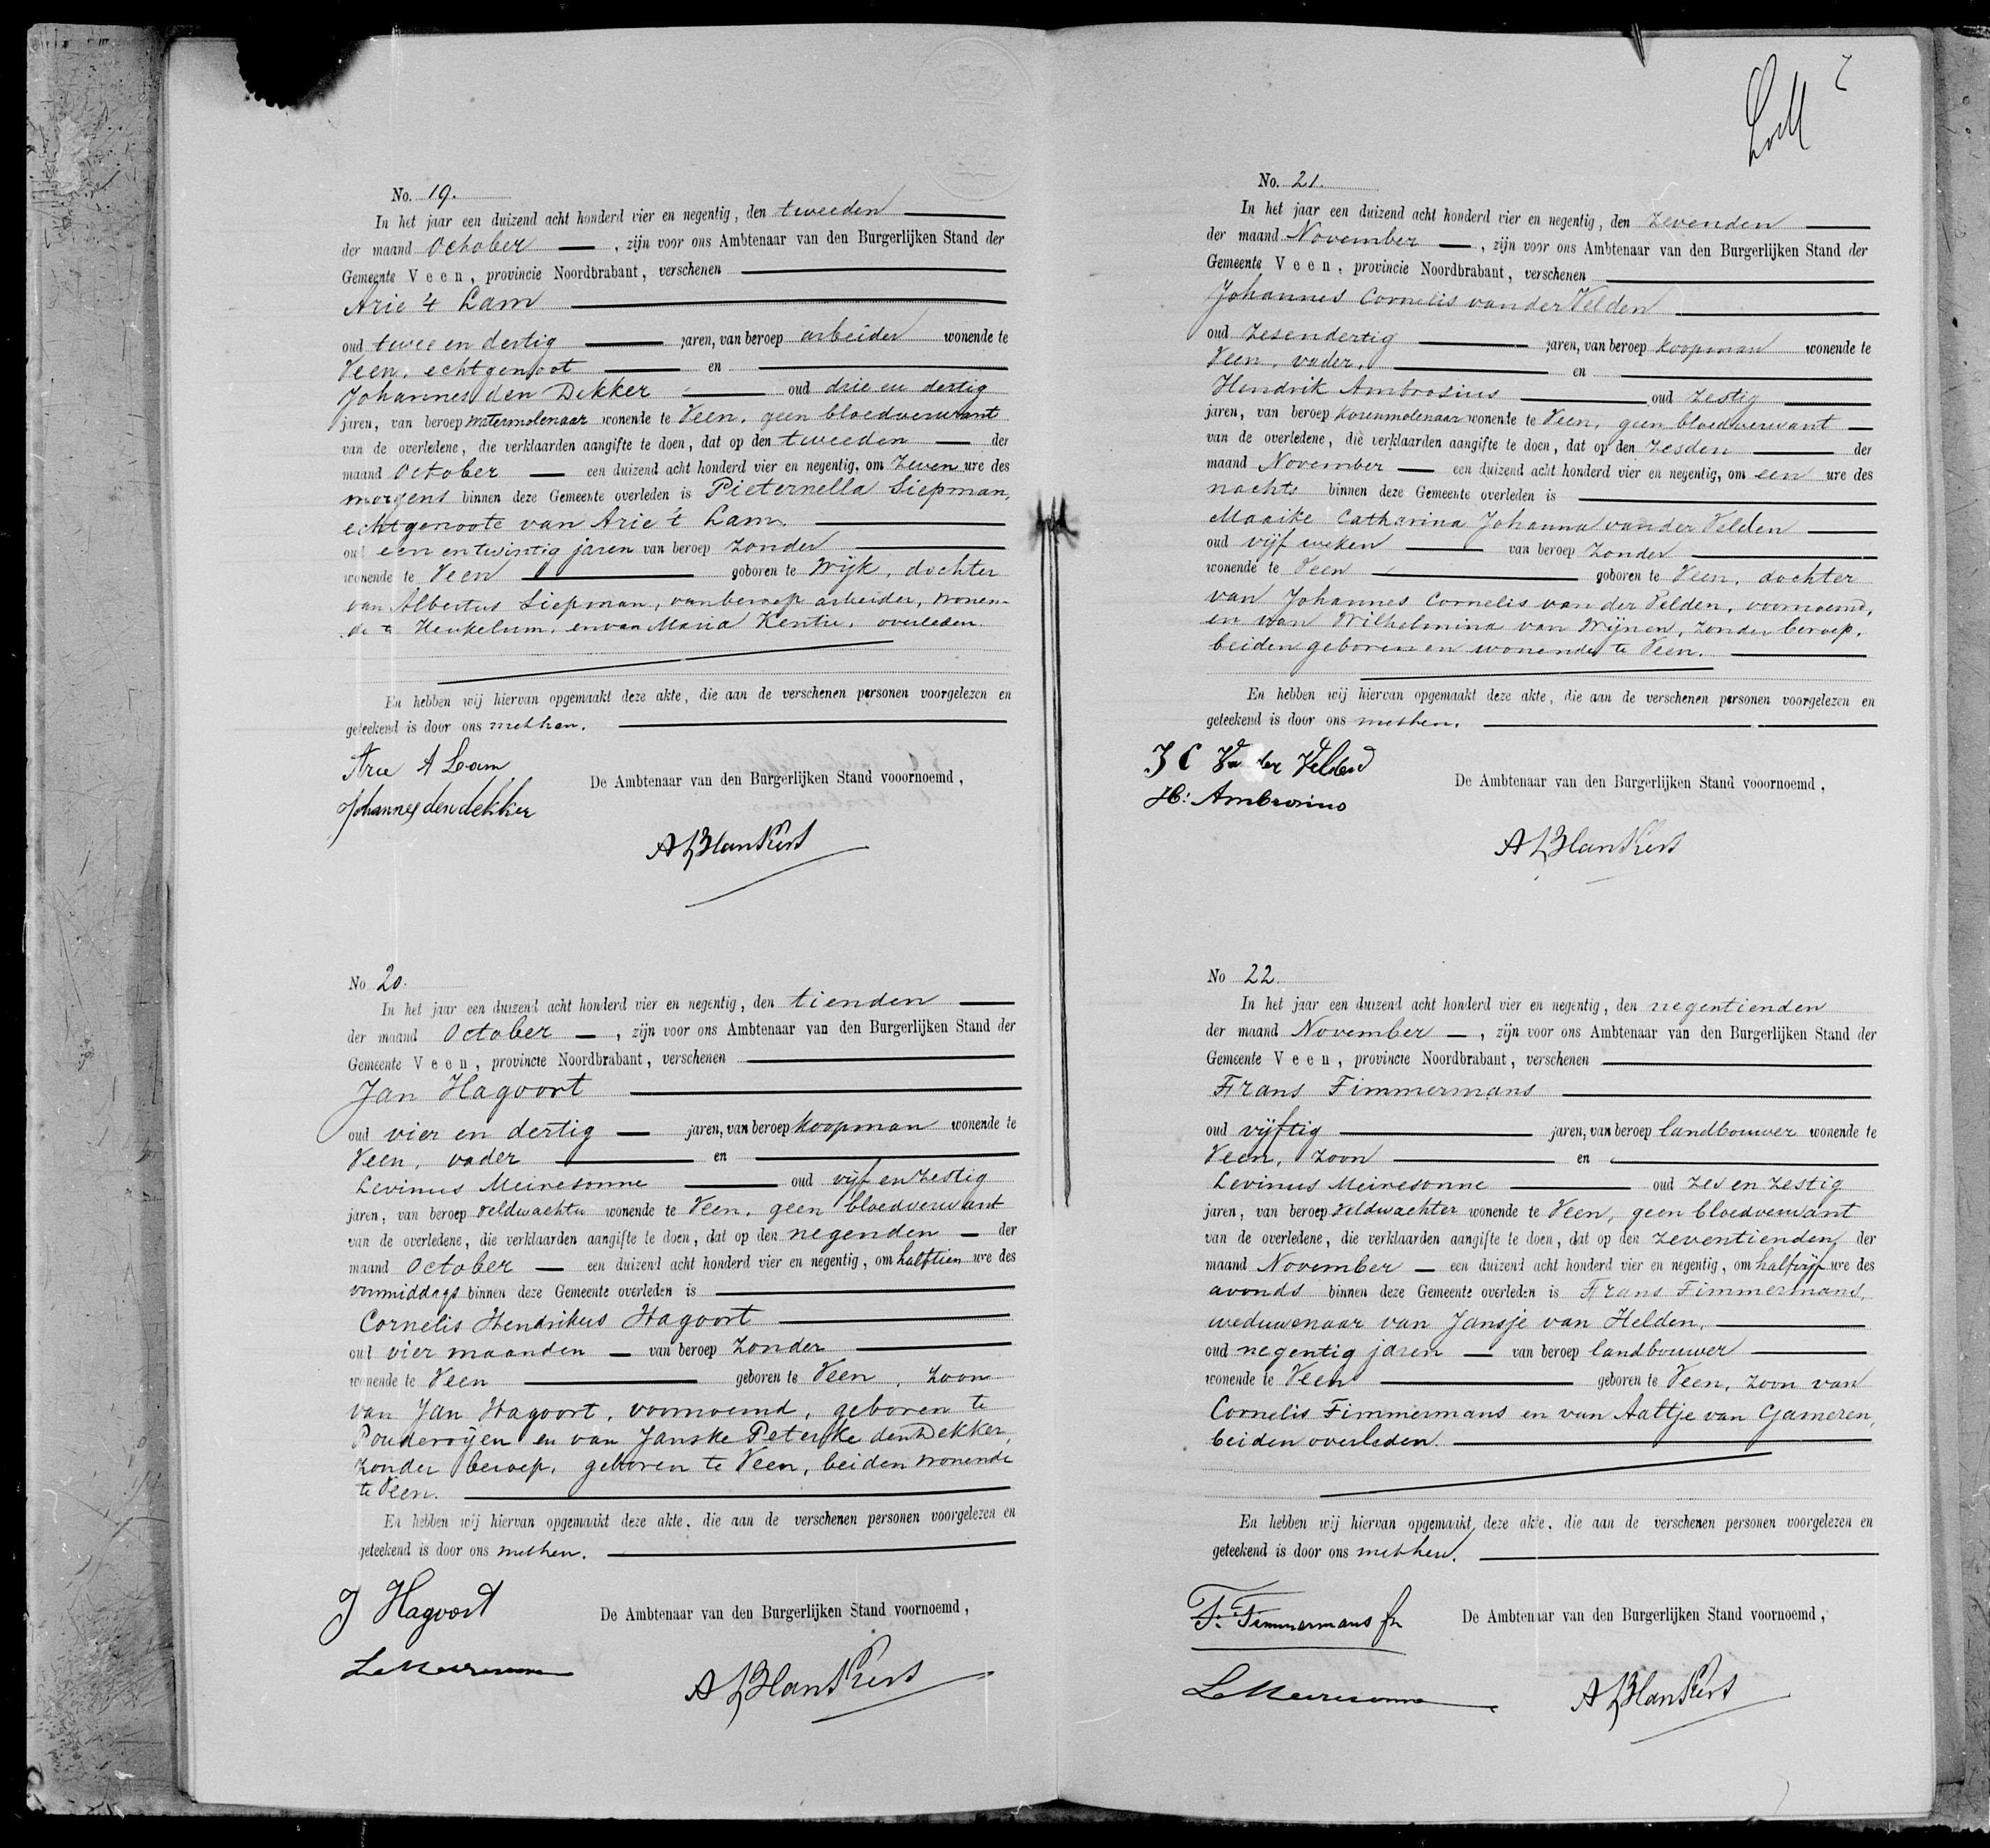 No. 19.
In het jaar een duizend acht honderd vier en negentig, den tweeden
der maand October, zijn voor ons Ambtenaar van den Burgerlijken Stand der
Gemeente Veen, provincie Noordbrabant, verschenen
Arie 't Lam
oud twee en dertig jaren, van beroep arbeider wonende te
Veen, echtgenoot en
Johannes den Dekker oud drie en dertig
jaren, van beroep watermolenaar wonende te Veen, geen bloedverwant
van de overledene, die verklaarden aangifte te doen, dat op den tweeden der
maand October een duizend acht honderd vier en negentig, om zeven ure des
morgens binnen deze Gemeente overleden is Pieternella Siepman,
echtgenoote van Arie 't Lam.
oud een en twintig jaren van beroep zonder
wonende te Veen geboren te Wijk, dochter
van Albertus Siepman, van beroep arbeider, wonen-
de te Heukelum, en van Maria Kentie, overleden.
En hebben wij hiervan opgemaakt deze akte, die aan de verschenen personen voorgelezen en
geteekend is door ons met hen.
Arie t Lam
Johannes den dekker
De Ambtenaar van den Burgerlijken Stand vooornoemd,
A Blankert
No 20.
In het jaar een duizend acht honderd vier en negentig, den tienden
der maand October, zijn voor ons Ambtenaar van den Burgerlijken Stand der
Gemeente Veen, provincie Noordbrabant, verschenen
Jan Hagoort
oud vier en dertig jaren, van beroep koopman wonende te
Veen, vader en
Levinus Meiresonne oud vijf en zestig
jaren, van beroep veldwachter wonende te Veen, geen bloedverwant
van de overledene, die verklaarden aangifte te doen, dat op den negenden der
maand October een duizend acht honderd vier en negentig, om halftien ure des
voormiddags binnen deze Gemeente overleden is
Cornelis Hendrikus Hagoort
oud vier maanden van beroep zonder
wonende te Veen geboren te Veen, zoon
van Jan Hagoort, voornoemd, geboren te
Poederoijen en van Janske Peterke den Dekker,
zonder beroep, geboren te Veen, beiden wonende
te Veen.
En hebben wij hiervan opgemaakt deze akte, die aan de verschenen personen voorgelezen en
geteekend is door ons met hen.
J Hagoort
L Meiresonne
De Ambtenaar van den Burgerlijken Stand voornoemd,
A Blankert
No. 21.
In het jaar een duizend acht honderd vier en negentig, den zevenden
der maand November, zijn voor ons Ambtenaar van den Burgerlijken Stand der
Gemeente Veen, provincie Noordbrabant, verschenen
Johannes Cornelis van der Velden
oud zesendertig jaren, van beroep koopman wonende te
Veen, vader, en
Hendrik Ambrosius oud zestig
jaren, van beroep korenmolenaar wonende te Veen, geen bloedverwant
van de overledene, die verklaarden aangifte te doen, dat op den zesden der
maand November een duizend acht honderd vier en negentig, om een ure des
nachts binnen deze Gemeente overleden is
Maaike Catharina Johanna van der Velden
oud vijf weken van beroep zonder
wonende te Veen geboren te Veen, dochter
van Johannes Cornelis van der Velden, voornoemd,
en van Wilhelmina van Wijnen, zonder beroep,
beiden geboren en wonende te Veen.
En hebben wij hiervan opgemaakt deze akte, die aan de verschenen personen voorgelezen en
geteekend is door ons met hen.
J C Van der Velden
H: Ambrosius
De Ambtenaar van den Burgerlijken Stand vooornoemd,
A Blankert
No 22.
In het jaar een duizend acht honderd vier en negentig, den negentienden
der maand November, zijn voor ons Ambtenaar van den Burgerlijken Stand der
Gemeente Veen, provincie Noordbrabant, verschenen
Frans Timmermans
oud vijftig jaren, van beroep landbouwer wonende te
Veen, zoon en
Levinus Meiresonne oud zes en zestig
jaren, van beroep veldwachter wonende te Veen, geen bloedverwant
van de overledene, die verklaarden aangifte te doen, dat op den zeventienden der
maand November een duizend acht honderd vier en negentig, om halfvijf ure des
avonds binnen deze Gemeente overleden is Frans Timmermans,
weduwenaar van Jansje van Helden,
oud negentig jaren van beroep landbouwer
wonende te Veen geboren te Veen, zoon van
Cornelis Timmermans en van Aaltje van Gameren,
beiden overleden.
En hebben wij hiervan opgemaakt deze akte, die aan de verschenen personen voorgelezen en
geteekend is door ons met hen.
F. Timmermans fz
L Meiresonne
De Ambtenaar van den Burgerlijken Stand voornoemd,
A Blankert